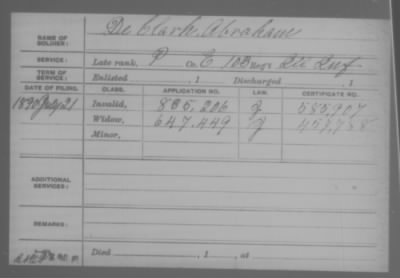 NAME OF SOLDIER: De Clark, Abraham
SERVICE: Late rank, P Co. E 103 Reg't Ill Inf
TERM OF SERVICE: Enlisted , 1 Discharged , 1
DATE OF FILING. CLASS. APPLICATION NO. LAW. CERTIFICATE NO.
1890 July 21 Invalid, 835,206
Widow, 647,449
Minor,
ADDITIONAL SERVICES:
REMARKS:
Died , 1 , at